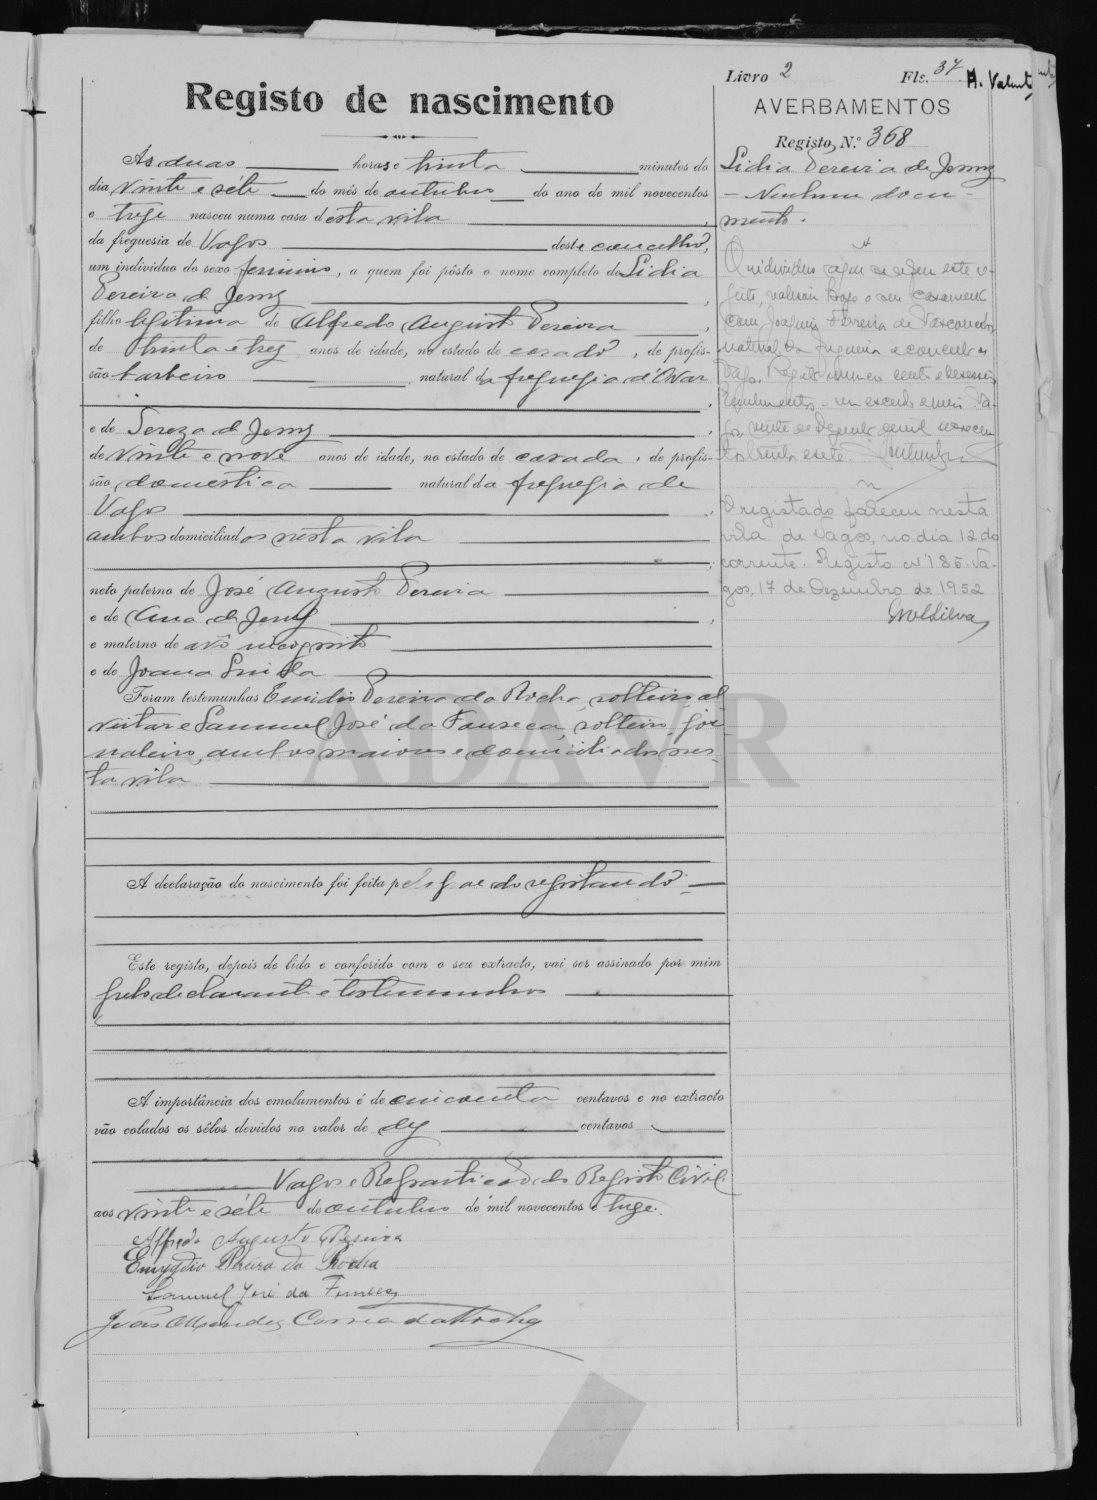 Livro 2 Fls. 37
H. Valent
Registo de nascimento
AVERBAMENTOS
Registo, N.º 368
Lidia Pereira de Jesus
- Nenhum docu-
mento.
As duas horas e trinta minutos do
dia vinte e sete do mês de outubro do ano de mil novecentos
e treze nasceu numa casa desta vila
da freguesia de Vagos deste concelho,
um individuo do sexo feminino, a quem foi pôsto o nome completo de Lidia
Pereira de Jesus
filho legitima de Alfredo Augusto Pereira
de trinta e trez anos de idade, no estado de casado, de profis-
são barbeiro, natural da freguesia d'Ovar
e de Tereza de Jesus
de vinte e nove anos de idade, no estado de casada, de profis-
são domestica natural da freguesia de
Vagos
ambos domiciliados nesta vila
neto paterno de José Augusto Pereira
e de Ana de Jesus
e materno de avô incognito
e de Joana
Foram testemunhas Emidio Pereira da Rocha, solteiro, al-
veitar e Samuel José da Fonseca, solteiro, jor-
naleiro, ambos maiores e domiciliados nes-
ta vila
A declaração do nascimento foi feita pelo pae do registando
Este registo, depois de lido e conferido com o seu extracto, vai ser assinado por mim
pelo declarante e testemunhas
A importância dos emolumentos é de cincoenta centavos e no extracto
vão colados os sêlos devidos no valor de dez centavos
Vagos e Repartição do Registo Civil
aos vinte e sete de outubro de mil novecentos e treze.
Alfredo Augusto Pereira
Emygdio Pereira da Rocha
Samuel José da Fonseca
João Mendes Correia da Rocha
O individuo a que se refere este
com Joaquim Ferreira de Vasconcelos
natural da freguesia e concelho de
Vagos, vinte de Dezembro de mil novecen-
tos trinta e sete
O registado faleceu nesta
vila de Vagos, no dia 12 do
corrente. Registo nº 185. Va-
gos, 17 de Dezembro de 1952
ADAVR